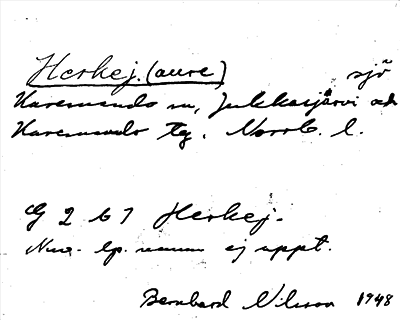 Herkej. (aure) sjö
Karesuando sn, Jukkasjärvi och
Karesuando tg. Norrb. l.
G 261 Herkej.
Nuv. lp. namn ej uppt.
Bernhard Nilsson 1948